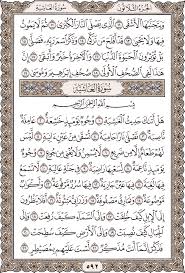 الجزء الثلاثون سورة الغاشية
وَيَتَجَنَّبُهَا الْأَشْقَى ١١ الَّذِي يَصْلَى النَّارَ الْكُبْرَىٰ ١٢ ثُمَّ لَا يَمُوتُ
فِيهَا وَلَا يَحْيَىٰ ١٣ قَدْ أَفْلَحَ مَن تَزَكَّىٰ ١٤ وَذَكَرَ اسْمَ رَبِّهِ فَصَلَّىٰ ١٥
بَلْ تُؤْثِرُونَ الْحَيَوٰةَ الدُّنْيَا ١٦ وَالْآخِرَةُ خَيْرٌ وَأَبْقَىٰ ١٧ إِنَّ هَٰذَا
لَفِي الصُّحُفِ الْأُولَىٰ ١٨ صُحُفِ إِبْرَٰهِيمَ وَمُوسَىٰ ١٩
سُورَةُ الْغَاشِيَةِ
بِسْمِ اللَّهِ الرَّحْمَٰنِ الرَّحِيمِ
هَلْ أَتَىٰكَ حَدِيثُ الْغَٰشِيَةِ ١ وُجُوهٌ يَوْمَئِذٍ خَٰشِعَةٌ ٢ عَامِلَةٌ
نَّاصِبَةٌ ٣ تَصْلَىٰ نَارًا حَامِيَةً ٤ تُسْقَىٰ مِنْ عَيْنٍ آنِيَةٍ ٥ لَّيْسَ
لَهُمْ طَعَامٌ إِلَّا مِن ضَرِيعٍ ٦ لَّا يُسْمِنُ وَلَا يُغْنِي مِن جُوعٍ ٧ وُجُوهٌ
يَوْمَئِذٍ نَّاعِمَةٌ ٨ لِّسَعْيِهَا رَاضِيَةٌ ٩ فِي جَنَّةٍ عَالِيَةٍ ١٠ لَّا تَسْمَعُ
فِيهَا لَٰغِيَةً ١١ فِيهَا عَيْنٌ جَارِيَةٌ ١٢ فِيهَا سُرُرٌ مَّرْفُوعَةٌ ١٣ وَأَكْوَابٌ
مَّوْضُوعَةٌ ١٤ وَنَمَارِقُ مَصْفُوفَةٌ ١٥ وَزَرَابِيُّ مَبْثُوثَةٌ ١٦ أَفَلَا يَنظُرُونَ
إِلَى الْإِبِلِ كَيْفَ خُلِقَتْ ١٧ وَإِلَى السَّمَاءِ كَيْفَ رُفِعَتْ ١٨ وَإِلَى
الْجِبَالِ كَيْفَ نُصِبَتْ ١٩ وَإِلَى الْأَرْضِ كَيْفَ سُطِحَتْ ٢٠
فَذَكِّرْ إِنَّمَا أَنتَ مُذَكِّرٌ ٢١ لَّسْتَ عَلَيْهِم بِمُصَيْطِرٍ ٢٢
٥٩٢